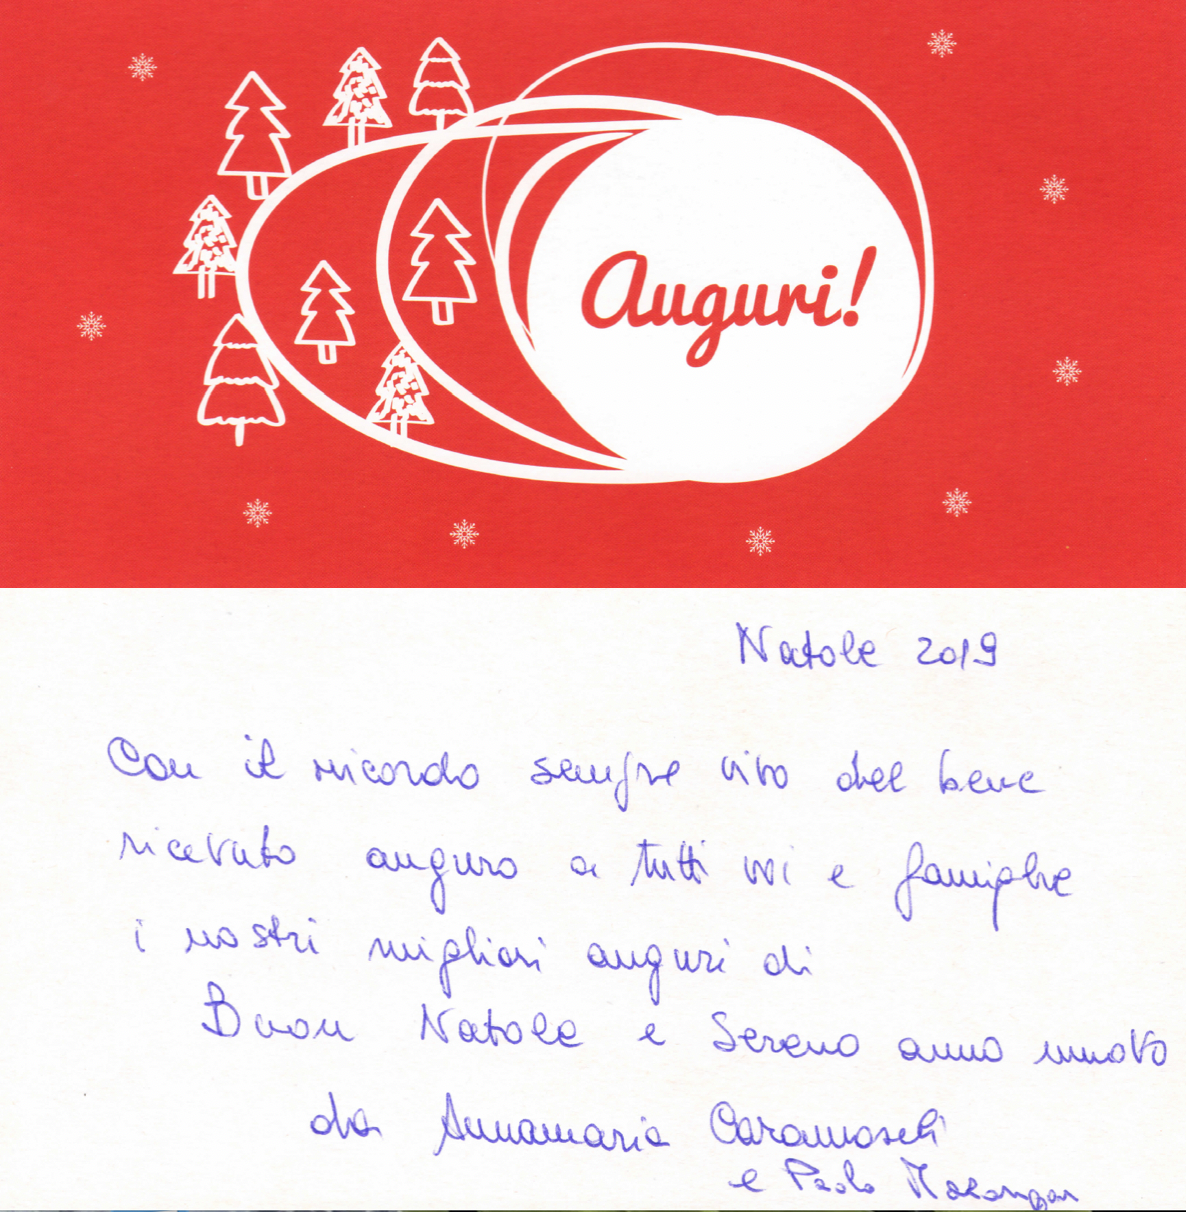 Auguri!
Natale 2019
Con il ricordo sempre vivo del bene
ricevuto auguro a tutti voi e famiglie
i nostri migliori auguri di
Buon Natale e Sereno anno nuovo
da Annamaria
e Paolo